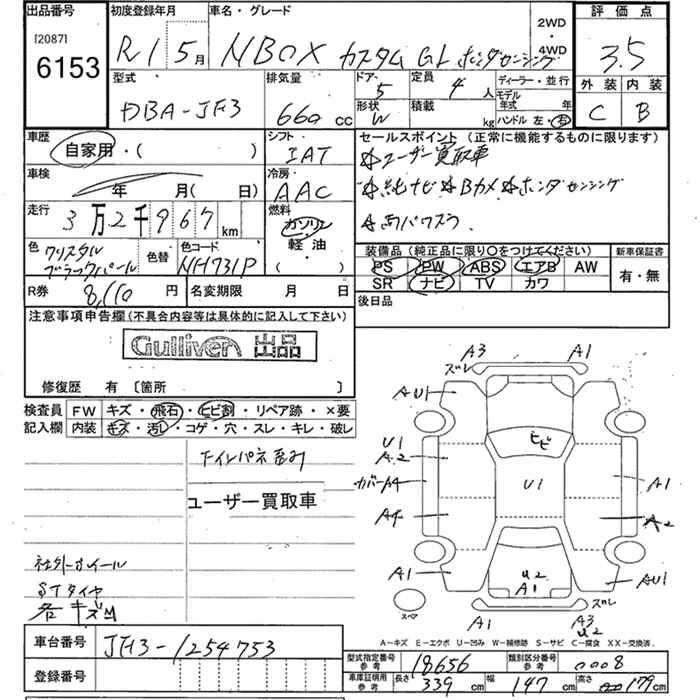 出品番号 初度登録年月 車名・グレード 2WD ・ 4WD 評価点
[2087]
6153 R1 5月 NBOX カスタム GL ホンダセンシング 3.5
型式 排気量 ドア 定員 ディーラー・並行 外装 内装
DBA-JF3 660 CC 5 4人 モデル年式 年 C B
形状 W 積載 kg ハンドル 左・右
車歴 自家用・( ) シフト IAT セールスポイント (正常に機能するものに限ります)
☆ユーザー買取車
車検 年 月( 日) 冷房 AAC ☆純ナビ ☆Bカメ ☆ホンダセンシング
走行 3万2千967km 燃料 ガソリン 軽・油 ( )
☆両パワスラ
色 クリスタルブラックパール 色替 色コード NH731P
装備品 (純正品に限り○をつけてください) 新車保証書
PS PW ABS エアB AW 有・無
SR ナビ TV カワ
R券 8,110円 名変期限 月 日 後日品
注意事項申告欄(不具合内容等は具体的に記入して下さい)
Gulliver 出品
修復歴 有 〔箇所 〕
検査員 FW キズ・飛石・ヒビ割・リペア跡・×要
記入欄 内装 キズ・汚レ・コゲ・穴・スレ・キレ・破レ
ユーザー買取車
社外ホイール
STタイヤ
各キズM
A3 A1
ズレ
AU1
U1
A2
ヒビ
カバーA4 U1 A1
A4 A2
A1 U2 A1 AU1
スペア
ズレ
A1 A3
U2
A-キズ E-エクボ U-凹み W-補修跡 S-サビ C-腐食 XX-交換済
車台番号 JF3-1254753
登録番号
型式指定番号 参考 18656 類別区分番号 参考 0008
車庫証明用 参考 長さ 339cm 幅 147cm 高さ 179cm